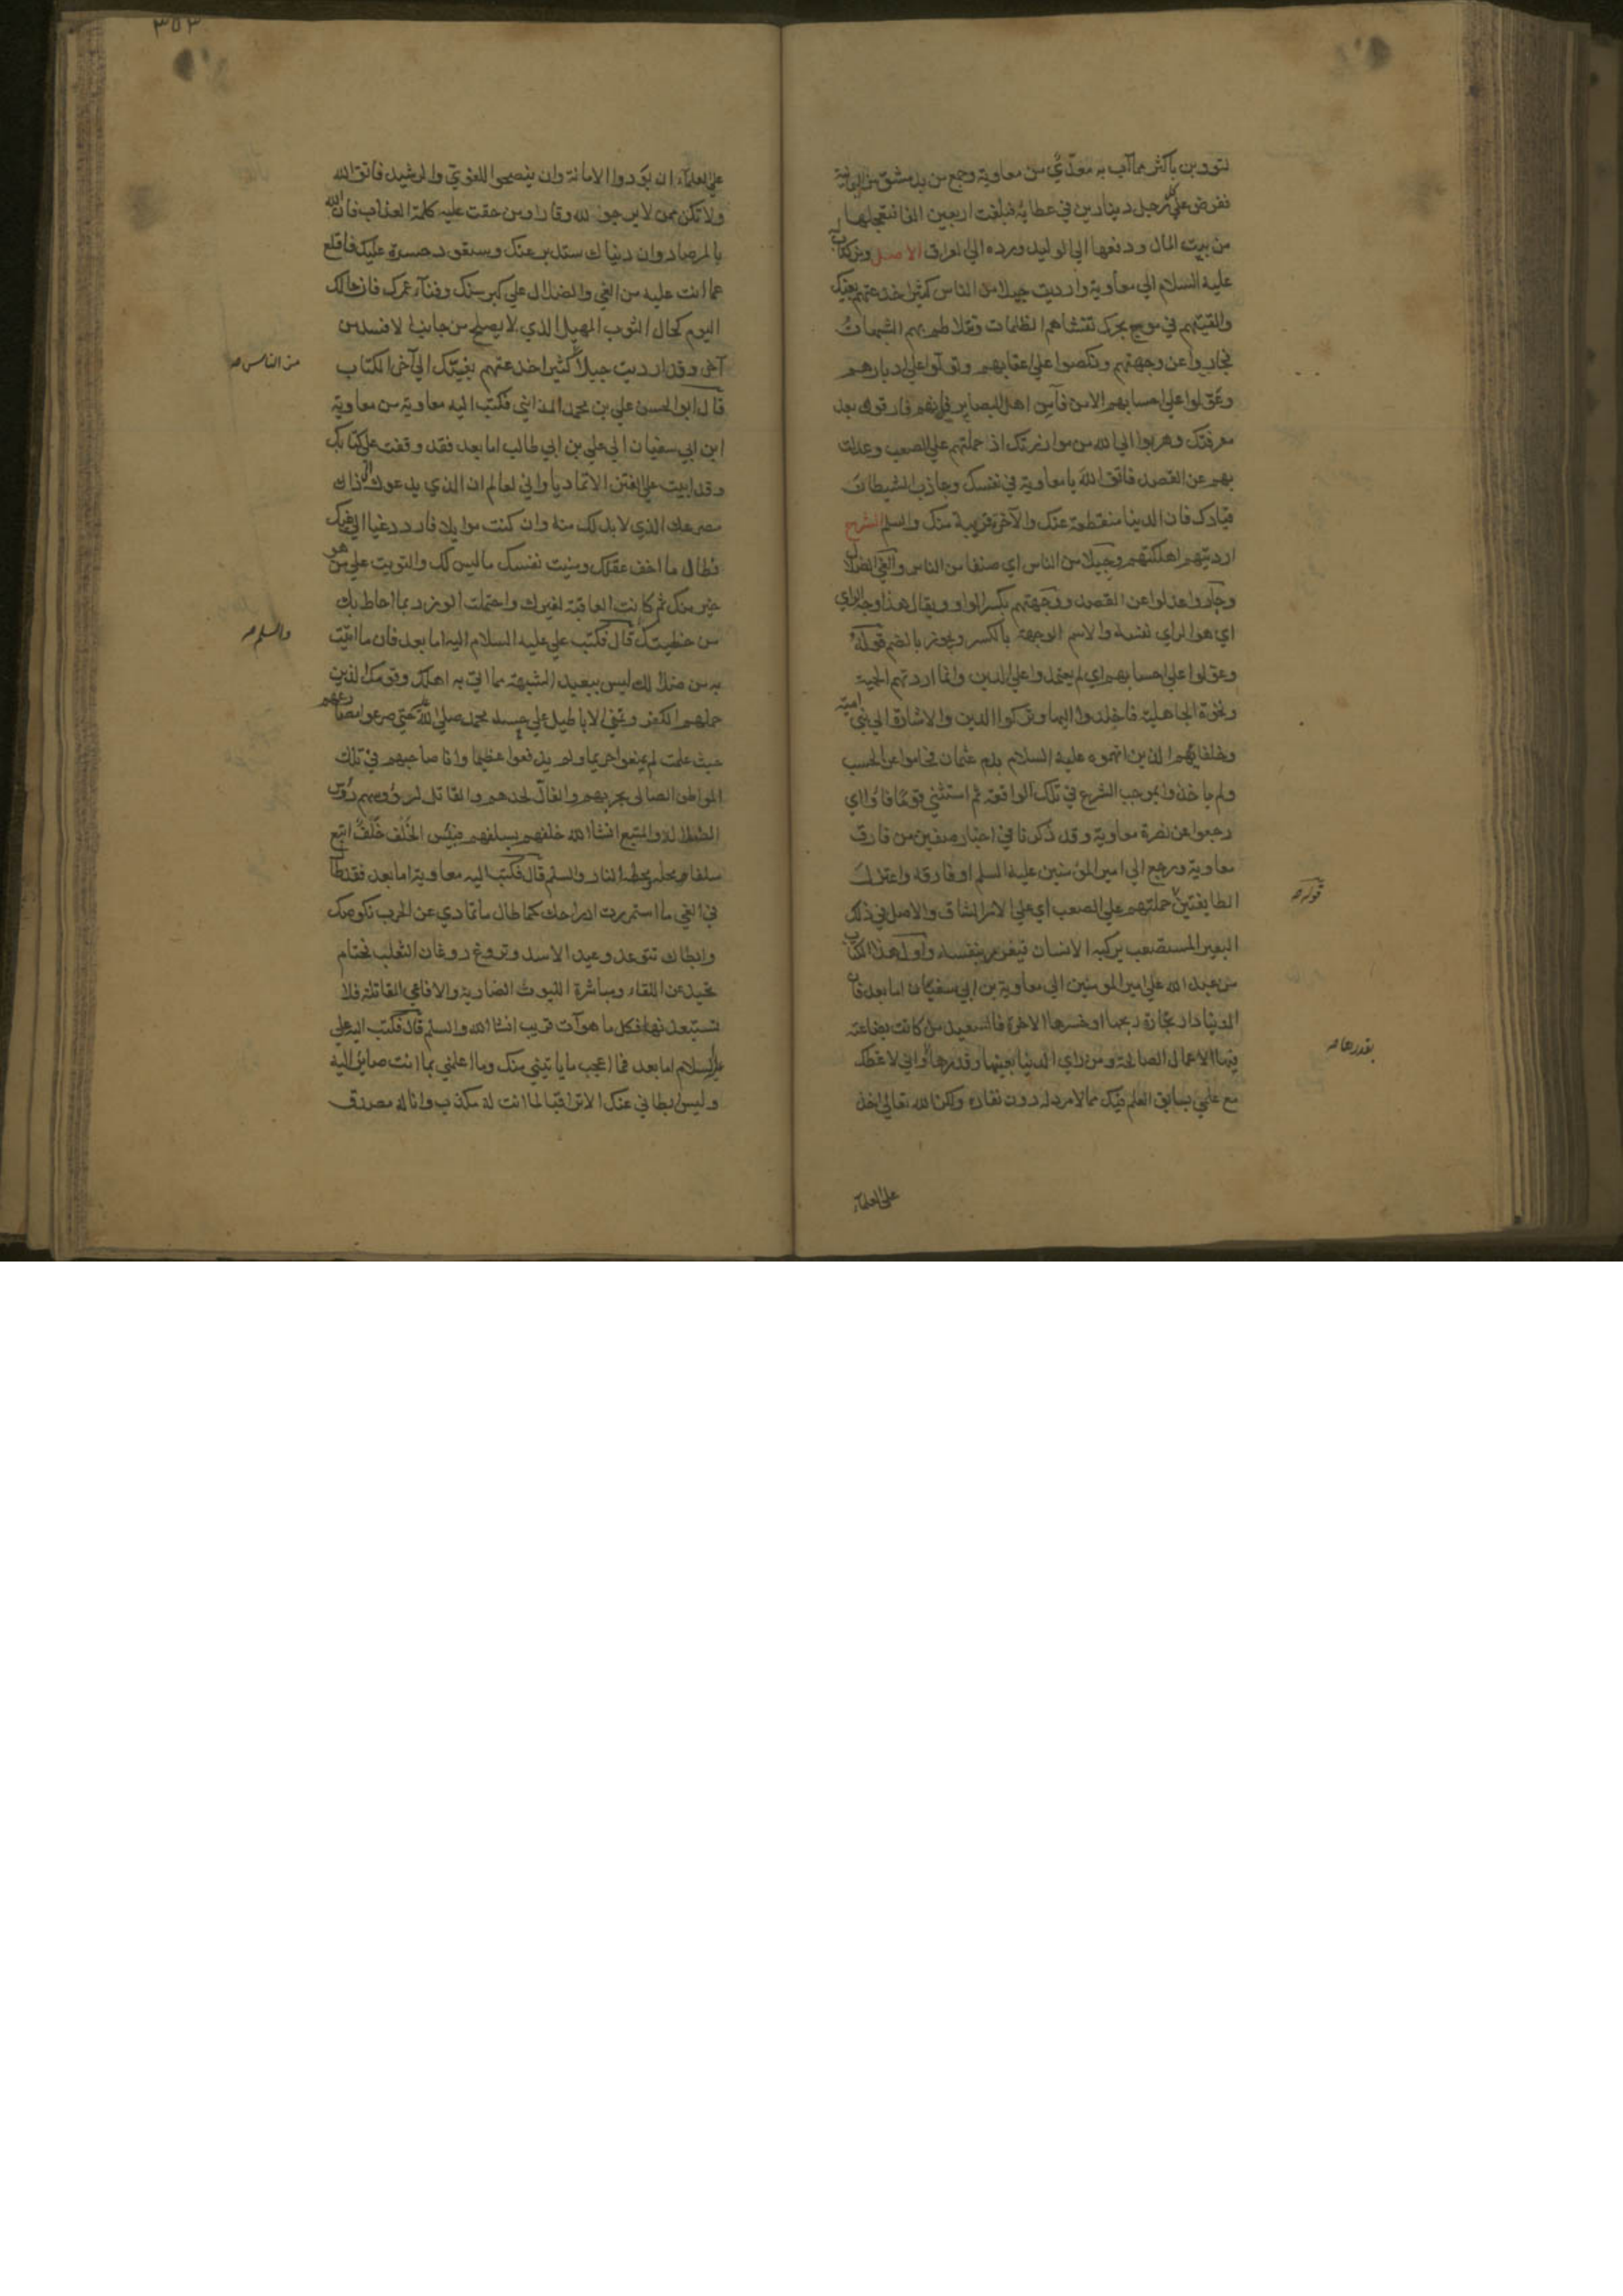 لتؤدين بأكثر مما آب به معدّيٌّ من معاوية وجمع من بدمشق من اليمانية
ففرض على كل رجل دينارين في عطائه فبلغت اربعين الفا فتعجلها
من بيت المال ودفعها الي الوليد ورده الي العراق الاصل ومن كتاب له
عليه السلام الي معاوية وارديت جيلا من الناس كثيرا خدعتهم بغيك
والقيتهم في موج بحرك تغشاهم الظلمات وتتلاطم بهم الشبهات
فجاروا عن وجهتهم ونكصوا علي اعقابهم وتولوا علي ادبارهم
وعوّلوا علي احسابهم الا من فآء من اهل البصاير فإنهم فارقوك بعد
معرفتك وهربوا الي الله من موازرتك اذ حملتهم علي الصعب وعدلت
بهم عن القصد فاتق الله يا معاوية في نفسك وجاذب الشيطان
قيادك فان الدنيا منقطعة عنك والآخرة قريبة منك والسلم الشرح
ارديتهم اهلكتهم وجيلا من الناس اي صنفا من الناس والغي الضلال
وجاروا عدلوا عن القصد ووجهتهم بكسر الواو ويقال هذا وجه الراي
اي هو الراي نفسه والاسم الوجهة بالكسر ويجوز بالضم قوله
وعولوا علي احسابهم اي لم يعتمدوا علي الدين وانما اردتهم الحمية
ونخوة الجاهلية فاخلدوا اليها وتركوا الدين والاشارة الي بني امية
وخلفايهم الذين اتهموه عليه السلام بدم عثمان فحاموا عن الحسب
ولم ياخذوا بموجب الشرع في تلك الواقعة ثم استثني قوما فاؤا اي
رجعوا عن نصرة معاوية وقد ذكرنا في اخبار صفين من فارق
معاوية ورجع الي امير المؤمنين عليه السلم او فارقه واعتزل
الطايفتين حملتهم علي الصعب اي علي الامر الشاق والاصل في ذلك
قوله صح
البعير المستصعب يركبه الانسان فيغرر بنفسه واول هذا الكتاب
من عبد الله علي امير المومنين الي معاوية بن ابي سفيان اما بعد فان
الدنيا دار تجارة ربحها او خسرها الاخرة فالسعيد من كانت بضاعته
فيها الاعمال الصالحة ومن راي الدنيا بعينها وقدرها واني لاعظك
بقدرها صح
مع علمي بسابق العلم فيك مما لا مرد له دون نفاذه ولكن الله تعالي اخذ
علي العلمآء
٣٥٣
علي العلمآء ان يؤدوا الامانة وان ينصحوا للغوي والرشيد فاتق الله
ولا تكن ممن لا يرجون لله وقارا ومن حقت عليه كلمة العذاب فان الله
بالمرصاد وان دنياك ستدبر عنك وستعود حسرة عليك فاقلع
عما انت عليه من الغي والضلال علي كبر سنك وفنآء عمرك فان حالك
اليوم كحال الثوب المهيل الذي لا يصلح من جانب الا فسد من
آخر وقد ارديت جيلا كثيرا خدعتهم بغيّك الي آخر الكتاب
من الناس صح
قال ابو الحسن علي بن محمد المدايني فكتب اليه معاوية من معاوية
ابن ابي سفيان الي علي بن ابي طالب اما بعد فقد وقفت علي كتابك
وقد ابيت علي الفتن الا تماديا واني لعالم ان الذي يدعوك الي ذلك
مصرعك الذي لا بد لك منه وان كنت موايلا فازدد غيا الي غيك
فطال ما اخف عقلك ومنيت نفسك ما ليس لك والتويت علي من هو
خير منك ثم كانت العاقبة لغيرك واحتملت الوزر بما احاط بك
من خطيئتك قال فكتب علي عليه السلام اليه اما بعد فان ما اتيت
والسلم صح
به من ضلالك ليس ببعيد الشبهة مما اتي به اهلك وقومك الذين
حملهم الكفر وتمني الاباطيل علي حسد محمد صلي الله حتي صرعوا مصارعهم
حيث علمت لم يمنعوا حريما ولم يدفعوا عظيما وانا صاحبهم في تلك
المواطن الصالي بحربهم والفالّ لحدهم والقاتل لرؤوسهم ورؤس
الضلالة والمتبع انشاالله خلفهم بسلفهم فبئس الخَلَفُ خَلَفٌ اتبع
سلفا محله ومحطه النار والسلم قال فكتب اليه معاوية اما بعد فقد طال
في الغي ما استمررت ادراجك كما طال ما تمادي عن الحرب نكوصك
وابطاك تتوعد وعيد الاسد وتروغ روغان الثعلب فحتام
تحيد عن اللقاء ومباشرة الليوث الضارية والافاعي القاتلة فلا
تستبعدنها فكل ما هو آت قريب انشا الله والسلم قال فكتب اليه علي
عليه السلام اما بعد فما اعجب ما ياتيني منك وما اعلمني بما انت صاير اليه
وليس ابطائي عنك الا ترقبا لما انت له مكذب وانا له مصدق